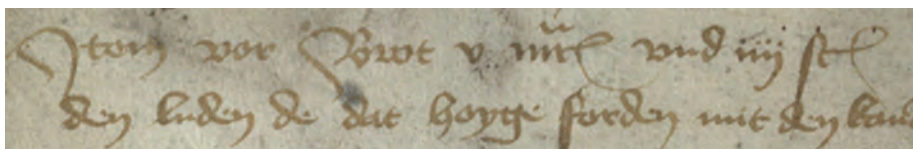 Item vor Brot v mrc vnd iiij sc
den luden de dat hoyge forden mit den